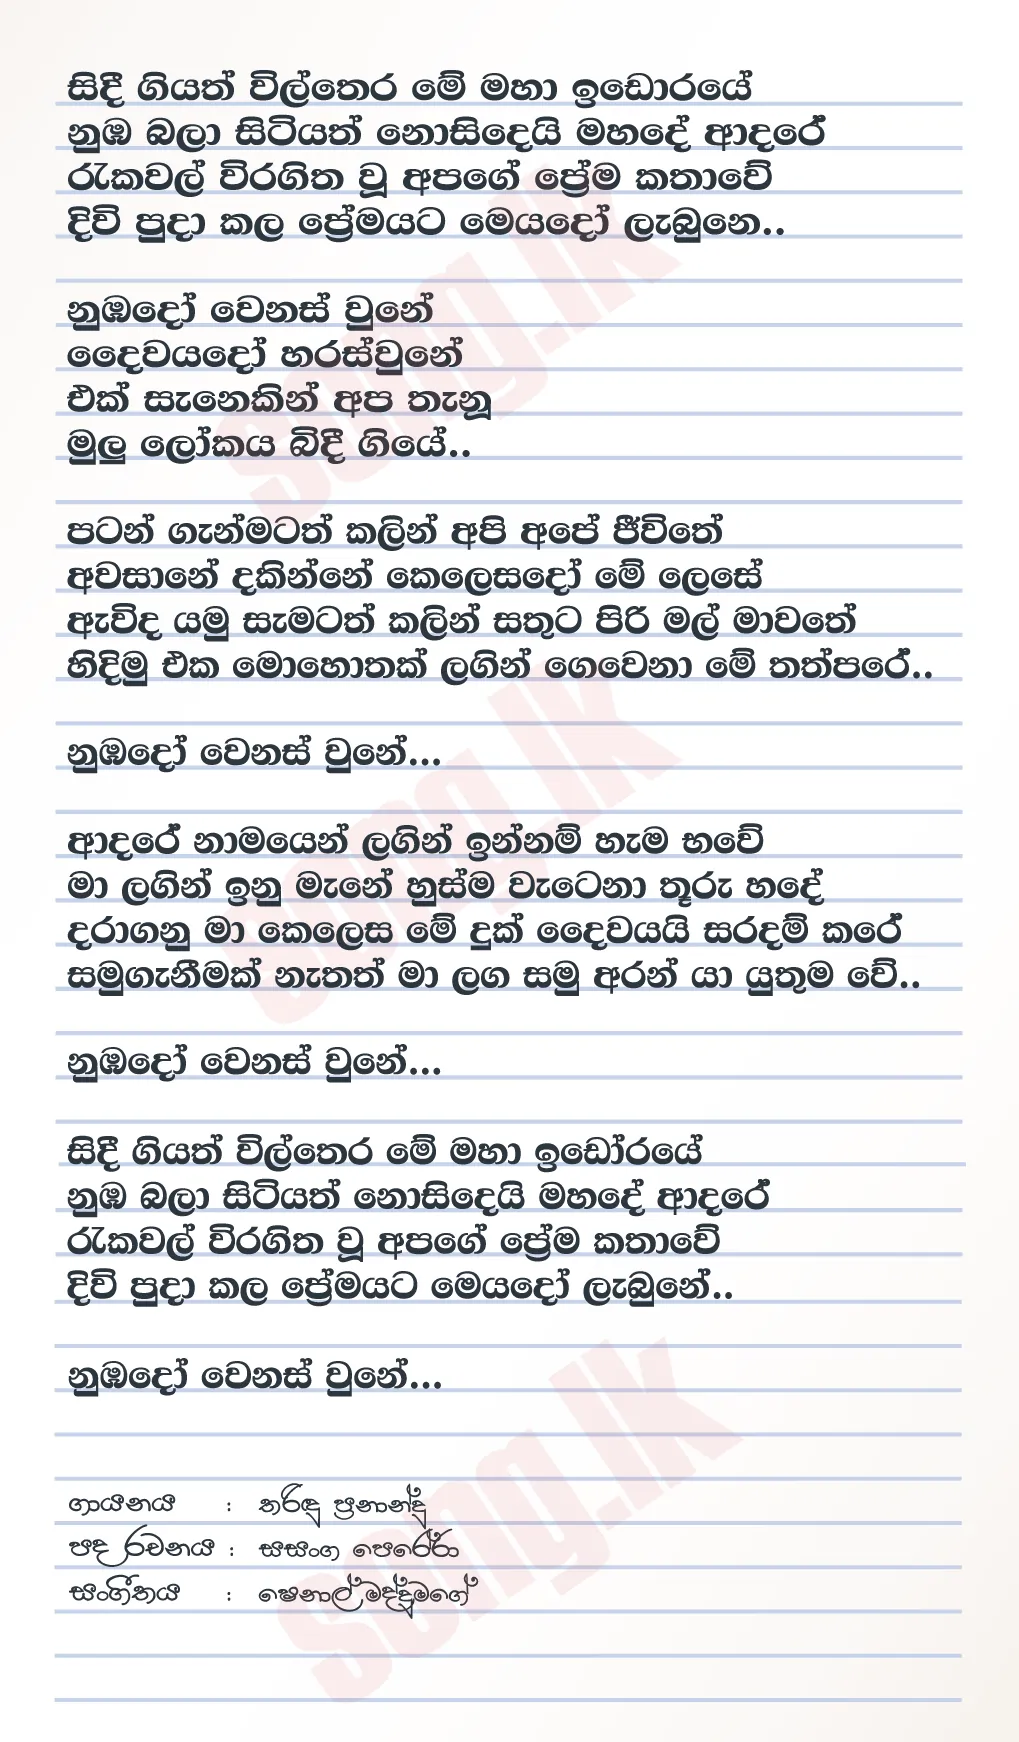 සිදී ගියත් විල්තෙර මේ මහා ඉඩොරයේ
නුඹ බලා සිටියත් නොසිදෙයි මහදේ ආදරේ
රැකවල් විරගිත වූ අපගේ ප්‍රේම කතාවේ
දිවි පුදා කල ප්‍රේමයට මෙයදෝ ලැබුනෙ..
නුඹදෝ වෙනස් වුනේ
දෛවයදෝ හරස්වුනේ
එක් සැනෙකින් අප තැනූ
මුලු ලෝකය බිදී ගියේ..
පටන් ගැන්මටත් කලින් අපි අපේ ජීවිතේ
අවසානේ දකින්නේ කෙලෙසදෝ මේ ලෙසේ
ඇවිද යමු සැමටත් කලින් සතුට පිරි මල් මාවතේ
හිදිමු එක මොහොතක් ලගින් ගෙවෙනා මේ තත්පරේ..
නුඹදෝ වෙනස් වුනේ...
ආදරේ නාමයෙන් ලගින් ඉන්නම් හැම භවේ
මා ලගින් ඉනු මැනේ හුස්ම වැටෙනා තූරු හදේ
දරාගනු මා කෙලෙස මේ දුක් දෛවයයි සරදම් කරේ
සමුගැනීමක් නැතත් මා ලග සමු අරන් යා යුතුම වේ..
නුඹදෝ වෙනස් වුනේ...
සිදී ගියත් විල්තෙර මේ මහා ඉඩෝරයේ
නුඹ බලා සිටියත් නොසිදෙයි මහදේ ආදරේ
රැකවල් විරගිත වූ අපගේ ප්‍රේම කතාවේ
දිවි පුදා කල ප්‍රේමයට මෙයදෝ ලැබුනේ..
නුඹදෝ වෙනස් වුනේ...
ගායනය : තරිඳු ප්‍රනාන්දු
පද රචනය : සසංග පෙරේරා
සංගීතය : ෂෙනාල් මද්දුමගේ
song.lk
song.lk
song.lk